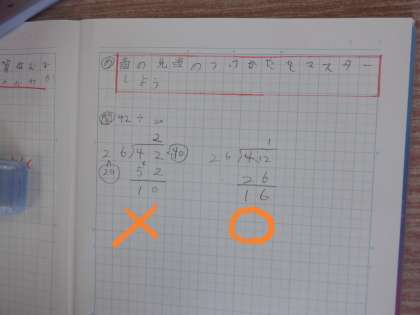 め 商の見当のつけかたをマスター
しよう
問 42÷
2
26)42 40
20 52
10
1
26)42
26
16